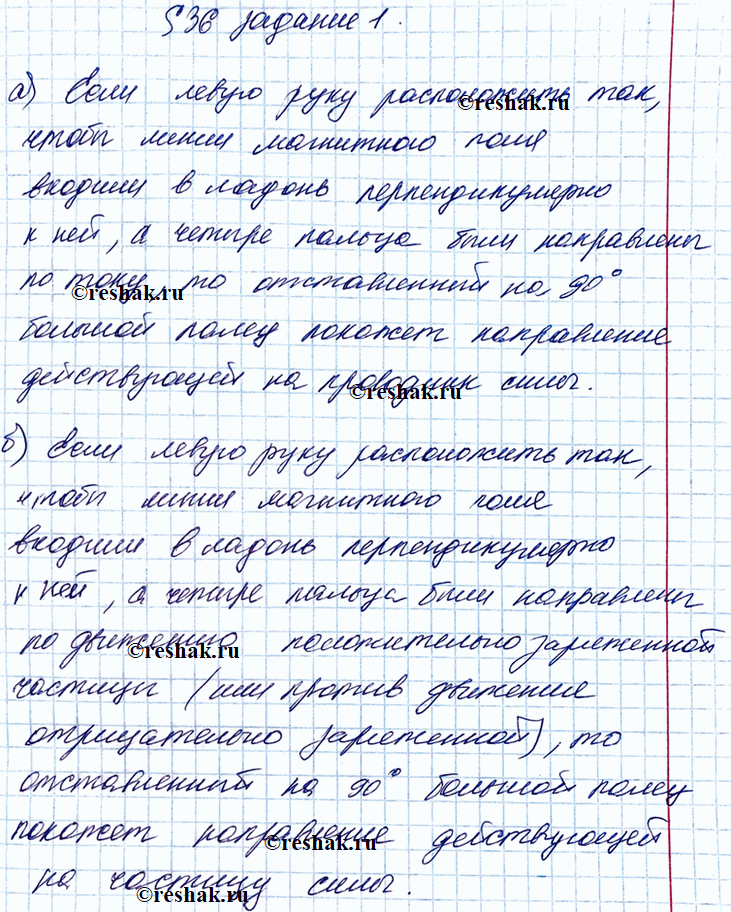 §36 задание 1.
а) Если левую руку расположить так,
©reshak.ru
чтобы линии магнитного поля
входили в ладонь перпендикулярно
к ней, а четыре пальца были направлены
по току, то отставленный на 90°
©reshak.ru
большой палец покажет направление
действующей на проводник силы.
©reshak.ru
б) Если левую руку расположить так,
чтобы линии магнитного поля
входили в ладонь перпендикулярно
к ней, а четыре пальца были направлены
по движению положительно заряженной
©reshak.ru
частицы (или против движения
отрицательно заряженной), то
отставленный на 90° большой палец
покажет направление действующей
©reshak.ru
на частицу силы.
©reshak.ru